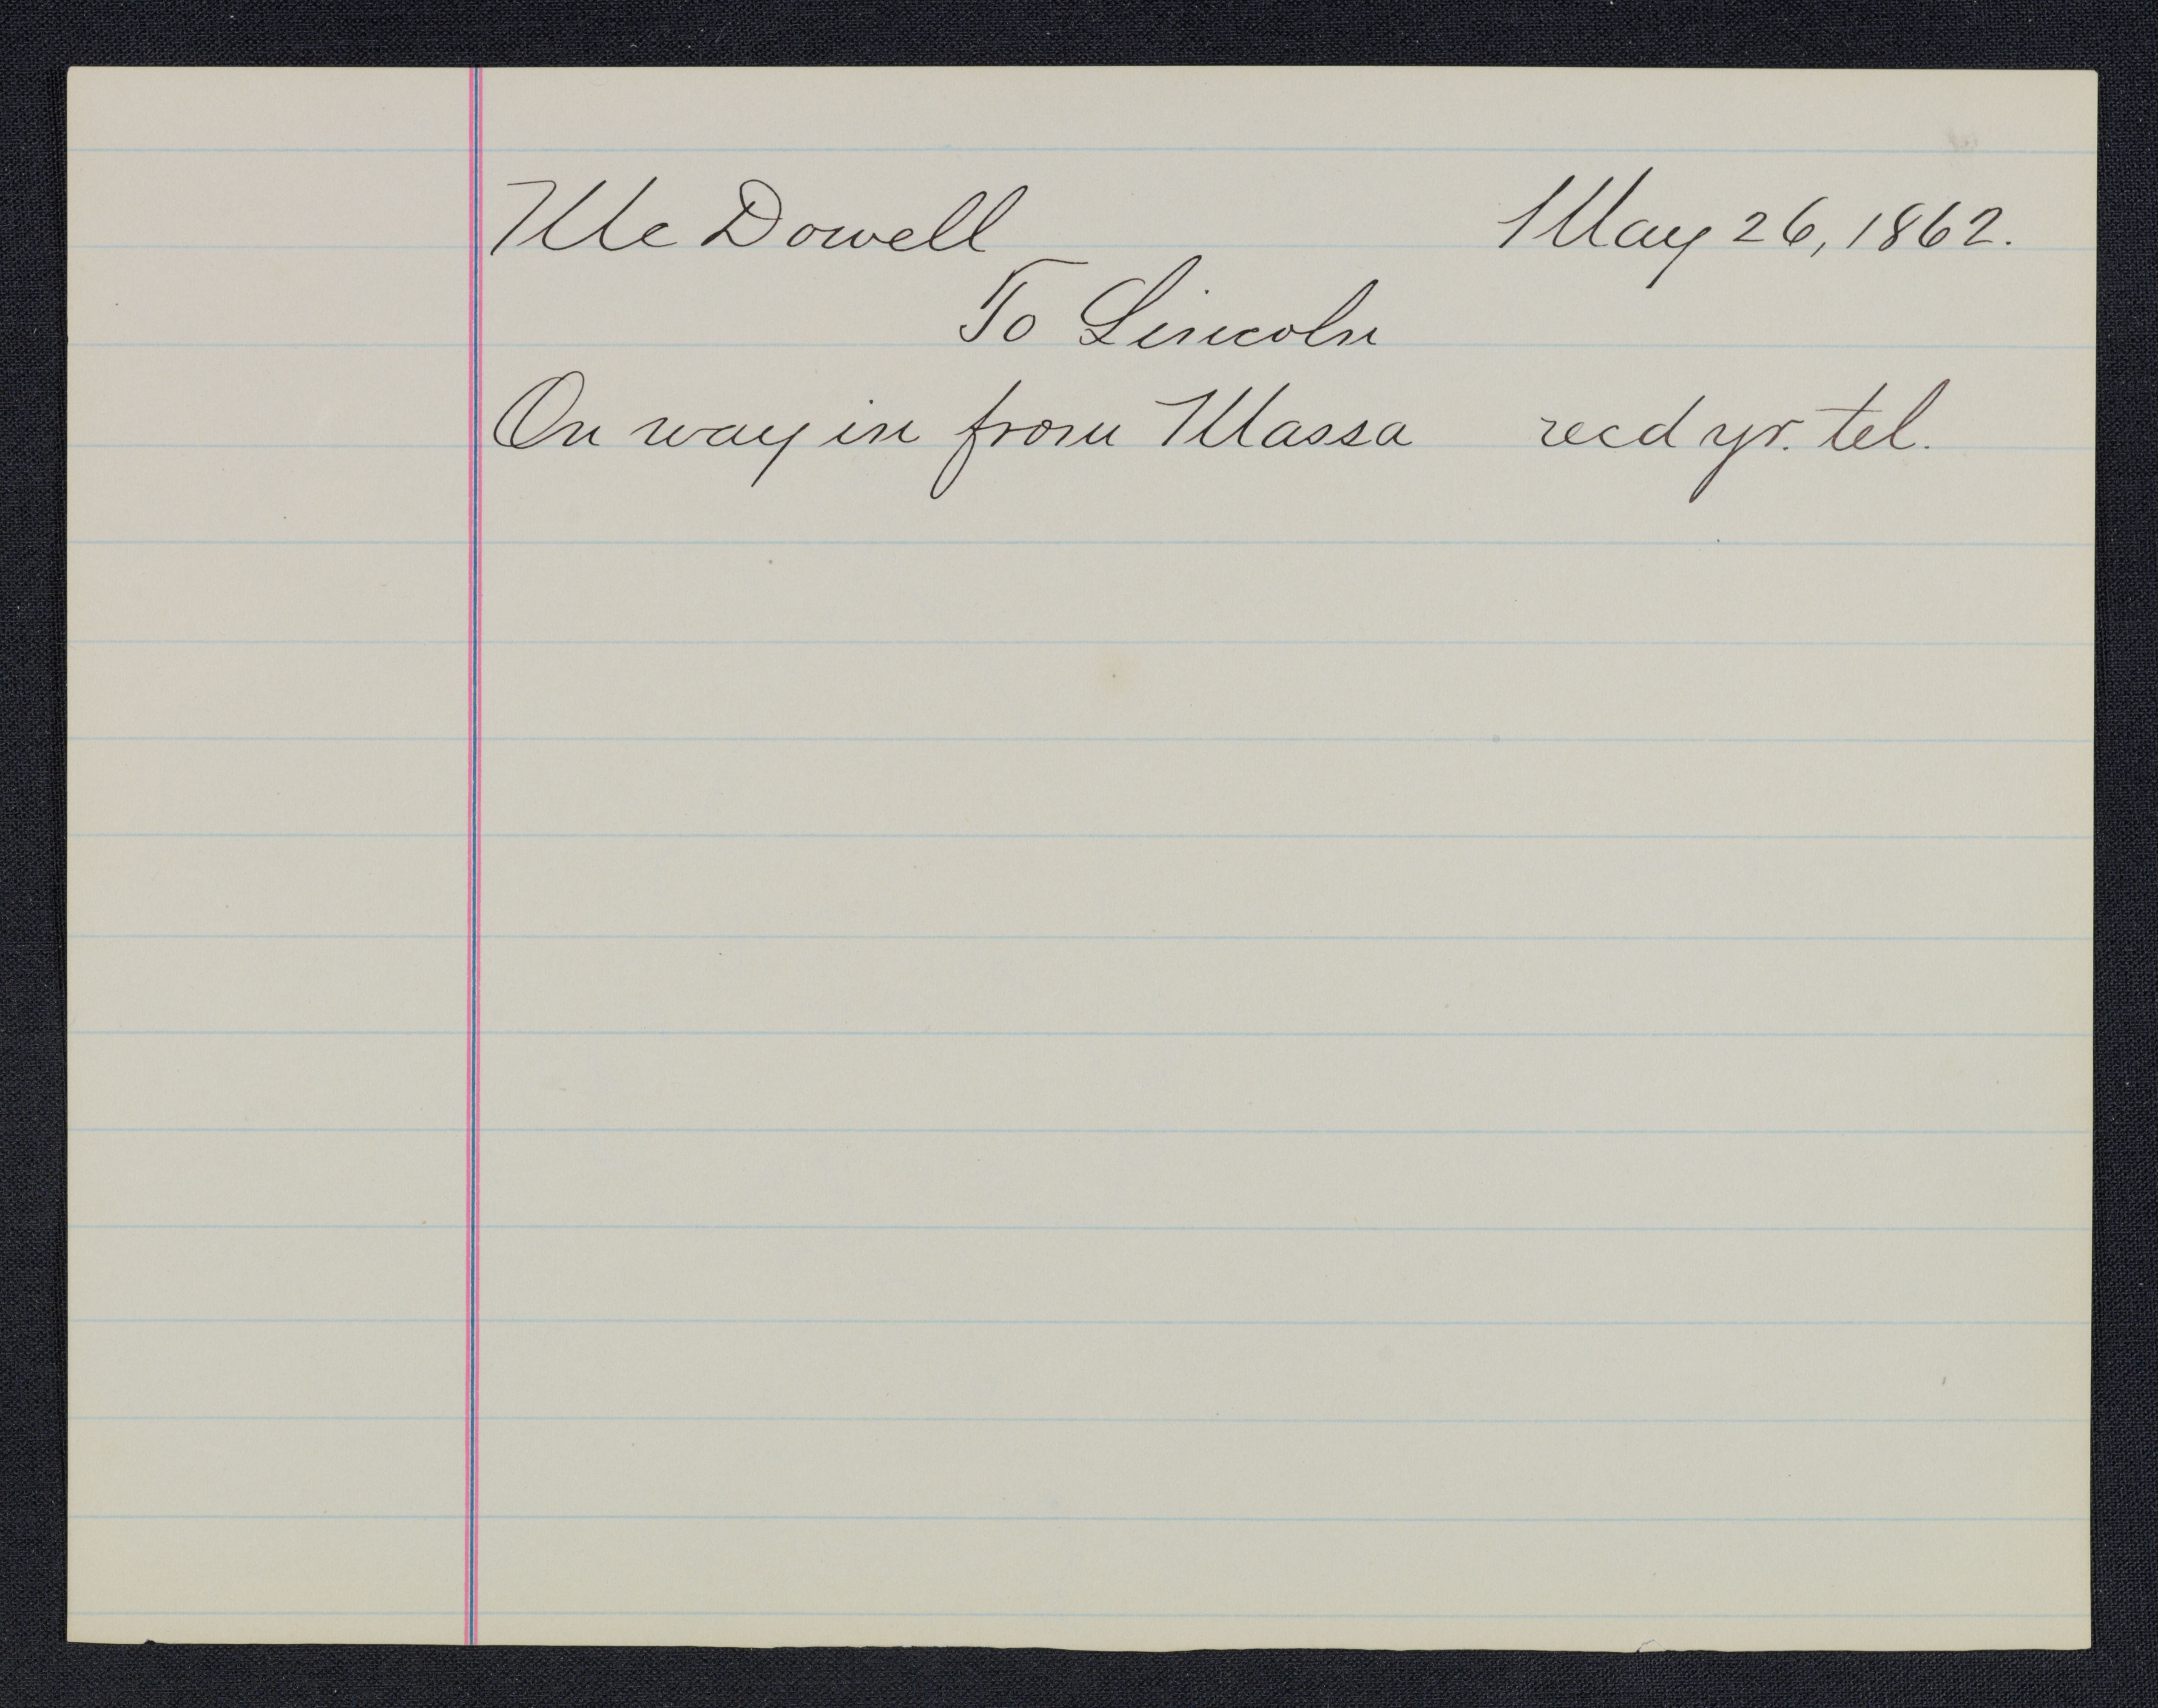 McDowell May 26, 1862.
To Lincoln
On way in from Massa recd yr. tel.